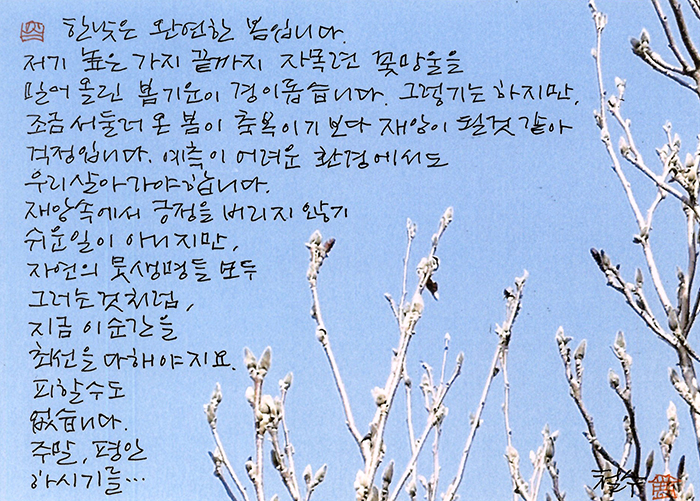 한낮은 완연한 봄입니다.
저기 높은 가지 끝까지 자목련 꽃망울을
밀어 올린 봄기운이 경이롭습니다. 그렇기는 하지만,
조금 서둘러 온 봄이 축복이기보다 재앙이 될것 같아
걱정입니다. 예측이 어려운 환경에서도
우리살아가야합니다.
재앙속에서 긍정을 버리지 않기
쉬운일이 아니지만,
자연의 뭇생명들 모두
그러는것처럼,
지금 이순간을
최선을 다해야지요.
피할수도
없습니다.
주말, 평안
하시기를...
철수